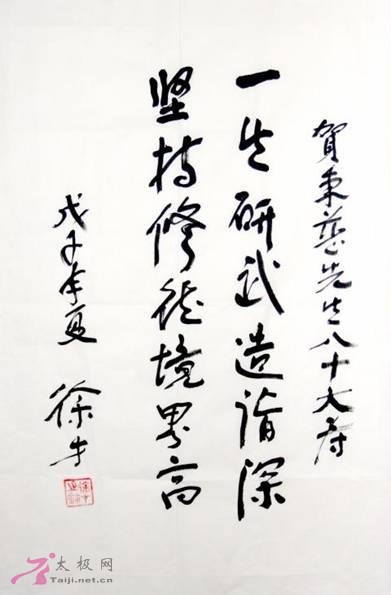 賀秉慈先生八十大寿
一生研武造诣深
坚持修德境界高
戊子年夏 徐才
太极网
Taiji.net.cn